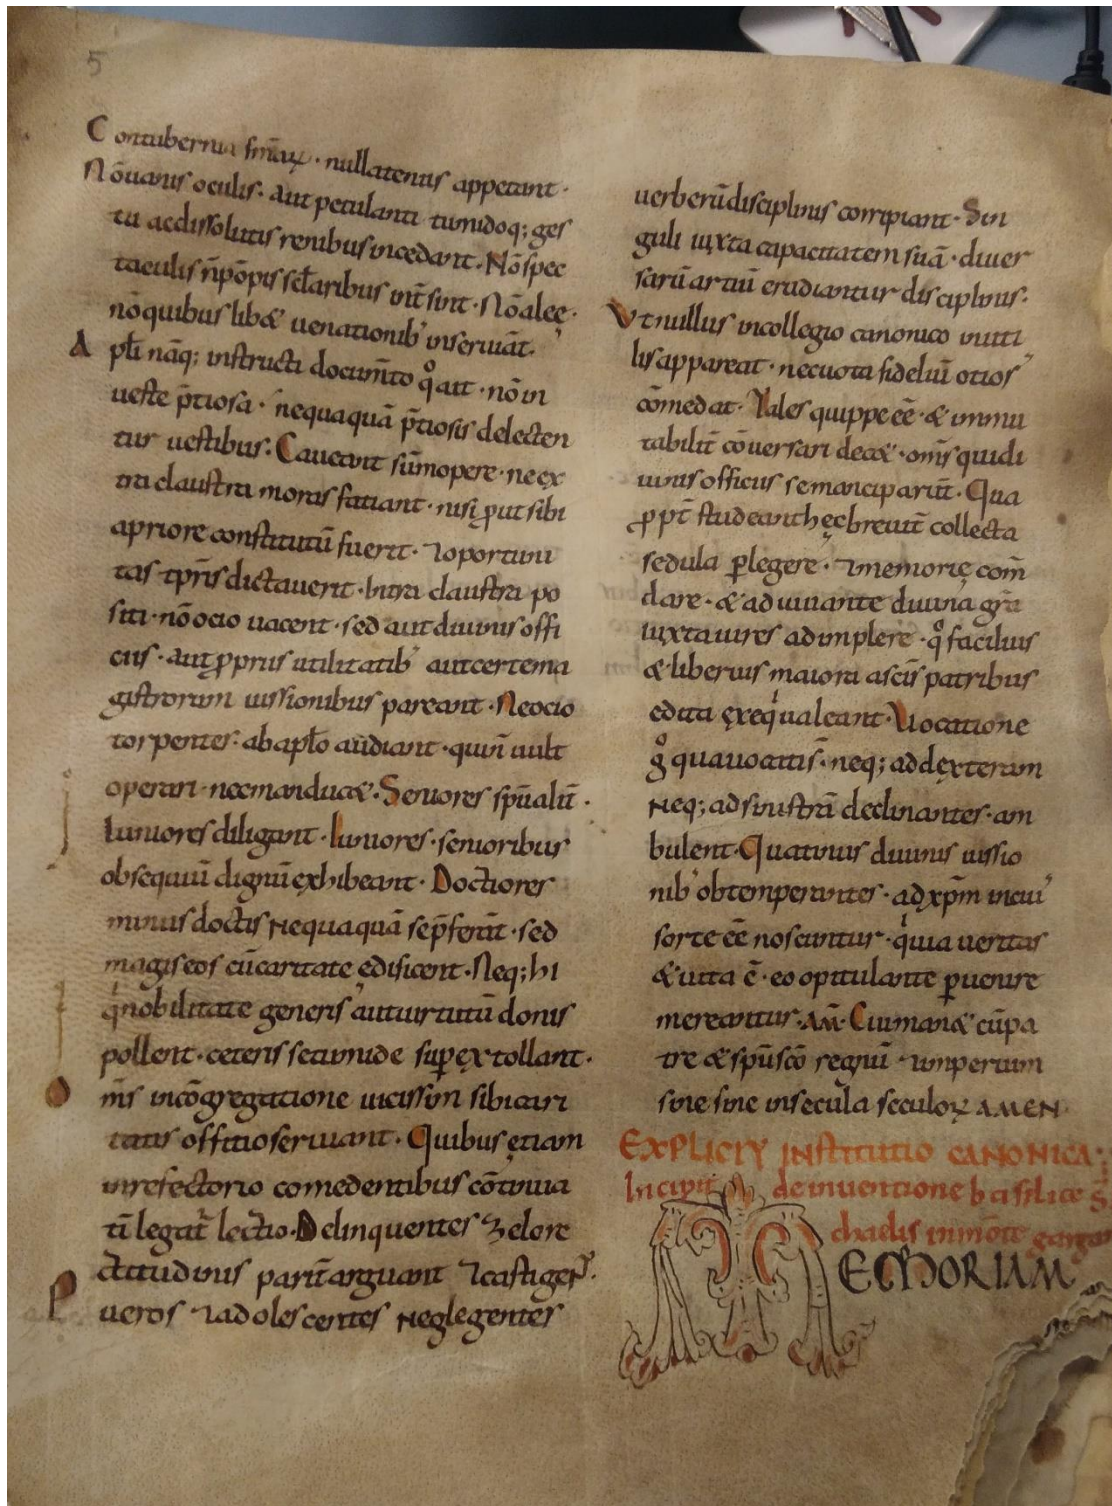 5
Contubernia fm̄aꝝ · nullatenus appetant ·
Nō uanis oculis · aut petulanti tumidoq; ges
tu ac dissolutis renibus incedant · Nō spec
taculis n̄ pōpis sc̄laribus int̄ sint · Nō aleę ·
nō quibuslib& uenationib' inseruiāt ·
Apl̄i nāq; instructi docum̄to qͦ ait · nō in
ueste p̄tiosa · nequaquā p̄tiosis delecten
tur uestibus · Caueant sūmopere · ne ex
tra claustra moras faciant · nisi ꝓut sibi
a priore constitutū fuerit · ⁊ oportuni
tas tp̄ris dictauerit · Intra claustra po
siti · nō ocio uacent · sed aut diuinis offi
ciis · aut ꝓpriis utilitatib' aut certe ma
gistrorum iussionibus pareant · Ne ocio
torpentes · ab apl̄o audiant · qui n̄ uult
operari · nec manduc& · Seniores spūaliū ·
Iuniores diligant · Iuniores · senioribus
obsequiū dignū exhibeant · Doctiores
minus doctis nequaquā se p̄ferāt · sed
magis eos cū caritate ędificent · Neq; hi
qͥ nobilitate generis aut uirtutū donis
pollent · ceteris se tumide suꝑ extollant ·
m̄s in cōgregatione uicissim sibi cari
tatis offitio seruiant · Quibus etiam
in refectorio comedentibus cō uiuia
ti legat̄ lectio · Delinquentes zelo re
ctitudinis parit̄ arguant ⁊ castigent ·
Pueros ⁊ adolescentes neglegentes
uerberū disciplinis corripiant · Sin
guli iuxta capacitatem suā · diuer
sarū artiū erudiantur disciplinis ·
Vt nullus in collegio canonico inuti
lis appareat · nec uota fideliū otios'
cōmedat · Tales quippe eē · & immu
tabilit̄ cō uersari dec& · om̄s qui di
uinis officiis se manciparut̄ · Qua
ꝓpt̄ studeant hęc breuit̄ collecta
sedula ꝑlegere · ⁊ memorię com̄
dare · & adiuuante diuina gr̄a
iuxta uires adimplere · qͦ facilius
& liberius maiora a sc̄is patribus
edita exeqͥ ualeant · Vocatione
gͦ qua uocati s̄ · neq; ad dexteram
neq; ad sinistrā declinantes · am
bulent · Quatinus diuinis iussio
nib' obtemperantes · ad xp̄m in cui'
sorte eē noscuntur · qͥ uia ueritas
& uita ē · eo opitulante ꝑuenire
mereantur · AM̄ · Cui manæ cū pa
tre & spū scō regnū · ⁊ imperium
sine fine in secula seculoꝝ AMEN
EXPLICIT INSTITUTIO CANONICA :
Incipit de inuentione basilice s̄
chaelis in mōte garga
MEMORIAM